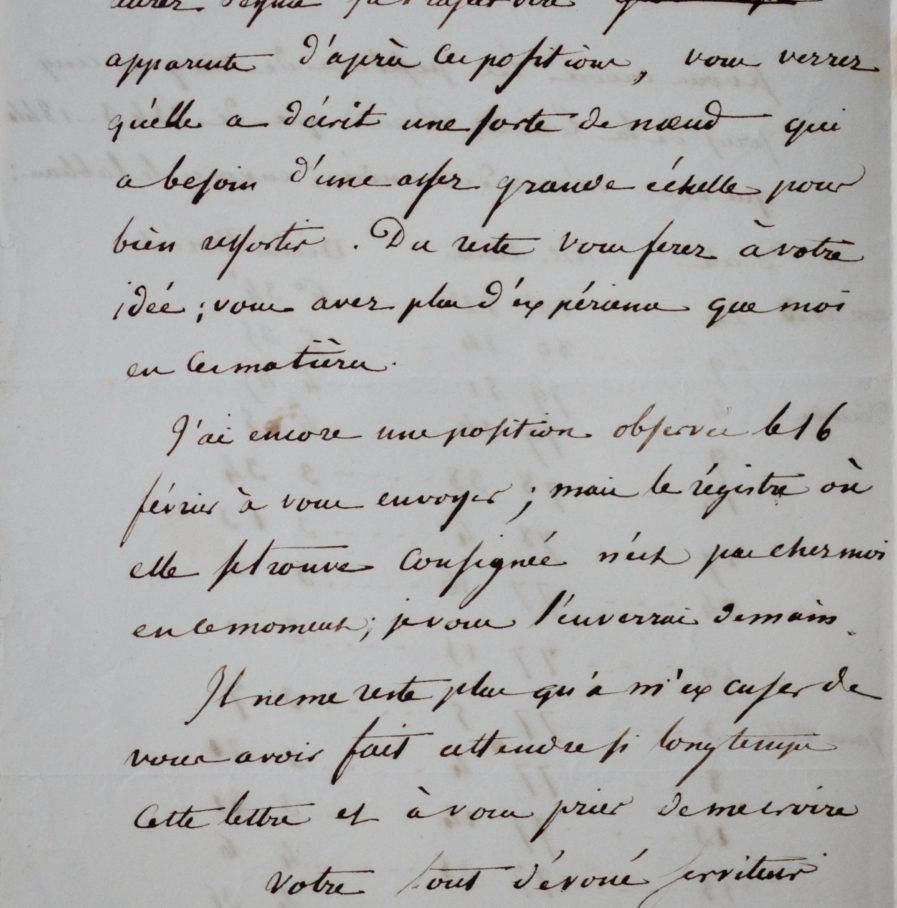 apparente d'après ces positions, vous verrez
qu'elle a décrit une sorte de nœud qui
a besoin d'une assez grande échelle pour
bien ressortir. Du reste vous ferez à votre
idée; vous avez plus d'expérience que moi
en ces matières.
J'ai encore une position observée le 16
février à vous envoyer; mais le régistre où
elle se trouve consignée n'est pas chez moi
en ce moment; je vous l'enverrai demain.
Il ne me reste plus qu'à m'excuser de
vous avoir fait attendre si longtemps
cette lettre et à vous prier de me croire
votre tout dévoué serviteur